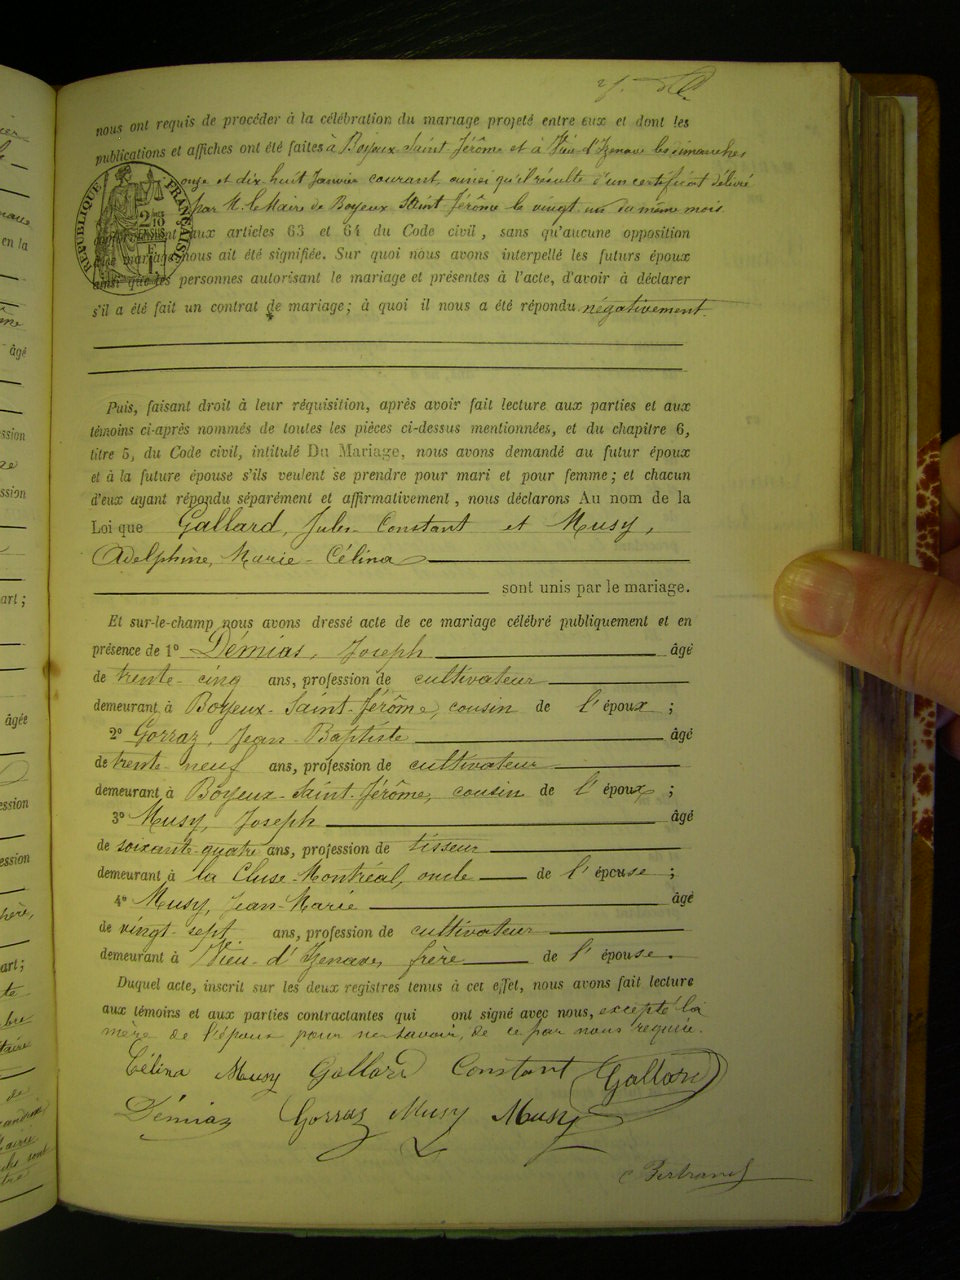 nous ont requis de procéder à la célébration du mariage projeté entre eux et dont les
publications et affiches ont été faites à Boyeux-Saint-Jérôme et à Vieu-d'Izenave les dimanches
onze et dix-huit Janvier courant, ainsi qu'il résulte d'un certificat délivré
par M. le Maire de Boyeux-Saint-Jérôme le vingt un du même mois
aux articles 63 et 64 du Code civil, sans qu'aucune opposition
mariage nous ait été signifiée. Sur quoi nous avons interpellé les futurs époux
ainsi que les personnes autorisant le mariage et présentes à l'acte, d'avoir à déclarer
s'il a été fait un contrat de mariage; à quoi il nous a été répondu négativement.
Puis, faisant droit à leur réquisition, après avoir fait lecture aux parties et aux
témoins ci-après nommés de toutes les pièces ci-dessus mentionnées, et du chapitre 6,
titre 5, du Code civil, intitulé Du Mariage, nous avons demandé au futur époux
et à la future épouse s'ils veulent se prendre pour mari et pour femme; et chacun
d'eux ayant répondu séparément et affirmativement, nous déclarons Au nom de la
Loi que Gallard, Jules-Constant et Musy,
Adelphine, Marie-Célina
sont unis par le mariage.
Et sur-le-champ nous avons dressé acte de ce mariage célébré publiquement et en
présence de 1º Démias, Joseph âgé
de trente-cinq ans, profession de cultivateur
demeurant à Boyeux-Saint-Jérôme, cousin de l'époux;
2º Gorraz, Jean-Baptiste âgé
de trente-neuf ans, profession de cultivateur
demeurant à Boyeux-Saint-Jérôme, cousin de l'époux;
3º Musy, Joseph âgé
de soixante-quatre ans, profession de tisseur
demeurant à la Cluse-Montréal, oncle de l'épouse;
4º Musy, Jean-Marie âgé
de vingt-sept ans, profession de cultivateur
demeurant à Vieu-d'Izenave, frère de l'épouse.
Duquel acte, inscrit sur les deux registres tenus à cet effet, nous avons fait lecture
aux témoins et aux parties contractantes qui ont signé avec nous, excepté la
mère de l'époux pour ne savoir, de ce par nous requise.
Célina Musy Gallard Constant Gallard
Démiaz Gorraz Musy Musy
Bertrand